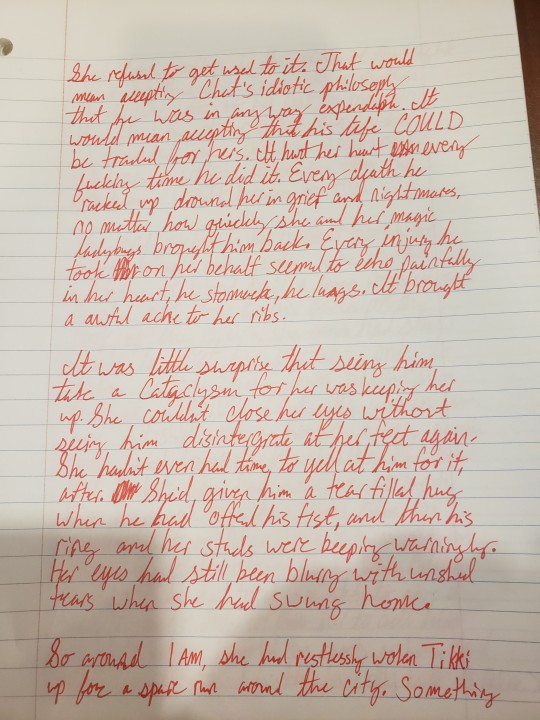 She refused to get used to it. That would
mean accepting Chat's idiotic philosophy
that he was in any way expendable. It
would mean accepting that his life COULD
be traded for hers. It hurt her heart every
fucking time he did it. Every death he
racked up drowned her in grief and nightmares,
no matter how quickly she and her magic
ladybugs brought him back. Every injury he
took on her behalf seemed to echo painfully
in her heart, he stomach, he lungs. It brought
a awful ache to her ribs.
It was little surprise that seeing him
take a Cataclysm for her was keeping her
up. She couldn't close her eyes without
seeing him disintergrate at her feet again.
She hadn't even had time to yell at him for it,
after. She'd given him a tear filled hug
when he had offerd his fist, and then his
ring and her studs were beeping warningly.
Her eyes had still been blurry with unshed
tears when she had swung home.
So around 1 AM, she had restlessly woken Tikki
up for a spare run around the city. Something